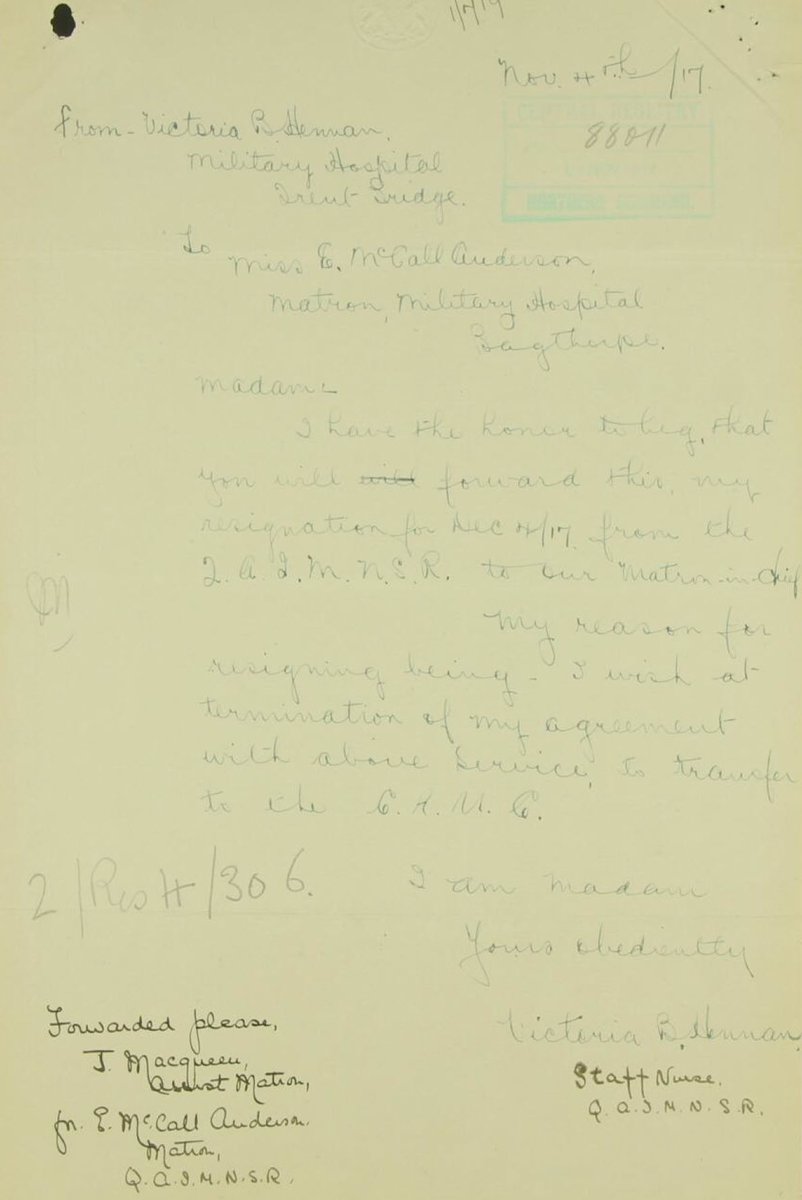 1/7/19
Nov. 4th/17.
CENTRAL REGISTRY
88011
NORTHERN COMMAND.
From - Victoria B. Hennan.
Military Hospital
Trent Bridge.
To
Miss E. McCall Anderson,
Matron, Military Hospital
Bagthorpe.
Madam:-
I have the honor to beg, that
you will will forward this, my
resignation for Dec 4/17 from the
Q. A. I. M. N. S. R. to our Matron-in-Chief
My reason for
resigning being - I wish at
termination of my agreement
with above Service, to transfer
to the C. A. M. C.
2/Res H/306.
I am Madam
Yours obediently
Victoria B. Hennan.
Staff Nurse.
Q. A. I. M. N. S. R.
Forwarded please,
J. Macqueen,
Assist Matron,
for. E. McCall Anderson.
Matron,
Q. A. I. M. N. S. R.